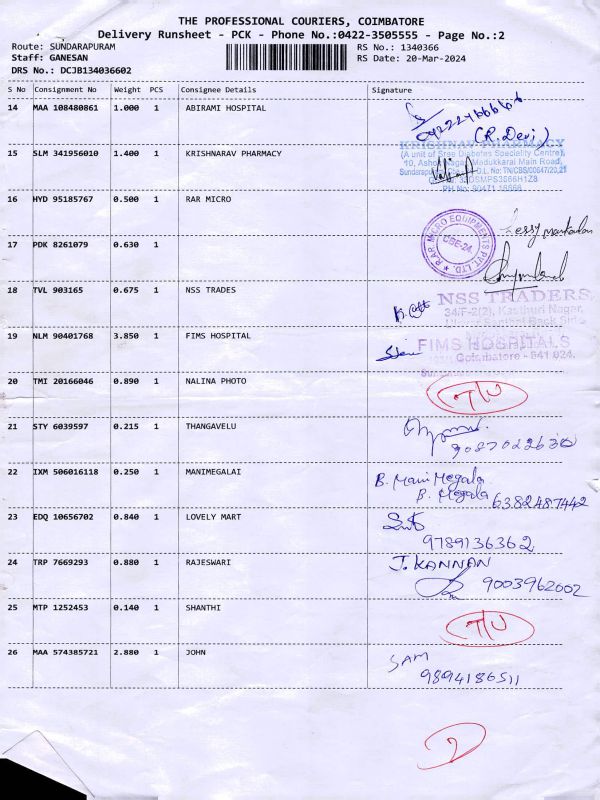 THE PROFESSIONAL COURIERS, COIMBATORE
Delivery Runsheet - PCK - Phone No.:0422-3505555 - Page No.:2
Route: SUNDARAPURAM RS No.: 1340366
Staff: GANESAN RS Date: 20-Mar-2024
DRS No.: DCJB134036602
S No Consignment No Weight PCS Consignee Details Signature
14 MAA 108480861 1.000 1 ABIRAMI HOSPITAL
(R. Devi)
15 SLM 341956010 1.400 1 KRISHNARAV PHARMACY
KRISHNAV PHARMACY
(A unit of Sree Diabetes Speciality Centre),
10, Ashok Nagar, Madukkarai Main Road,
16 HYD 95185767 0.500 1 RAR MICRO
RAR MICRO EQUIPMENTS PVT. LTD.
CBE-24.
17 PDK 8261079 0.630 1
18 TVL 903165 0.675 1 NSS TRADES
NSS TRADERS,
34/F-2(2), Kasthuri Nagar,
19 NLM 90401768 3.850 1 FIMS HOSPITAL
FIMS HOSPITALS
Coimbatore - 641 024.
20 TMI 20166046 0.890 1 NALINA PHOTO
T/U
21 STY 6039597 0.215 1 THANGAVELU
22 IXM 506016118 0.250 1 MANIMEGALAI
B. Mani Megala
B. Megala 6382487442
23 EDQ 10656702 0.840 1 LOVELY MART
9789136362
24 TRP 7669293 0.880 1 RAJESWARI
J. KANNAN
9003962002
25 MTP 1252453 0.140 1 SHANTHI
T/U
26 MAA 574385721 2.880 1 JOHN
SAM
9894186511
2